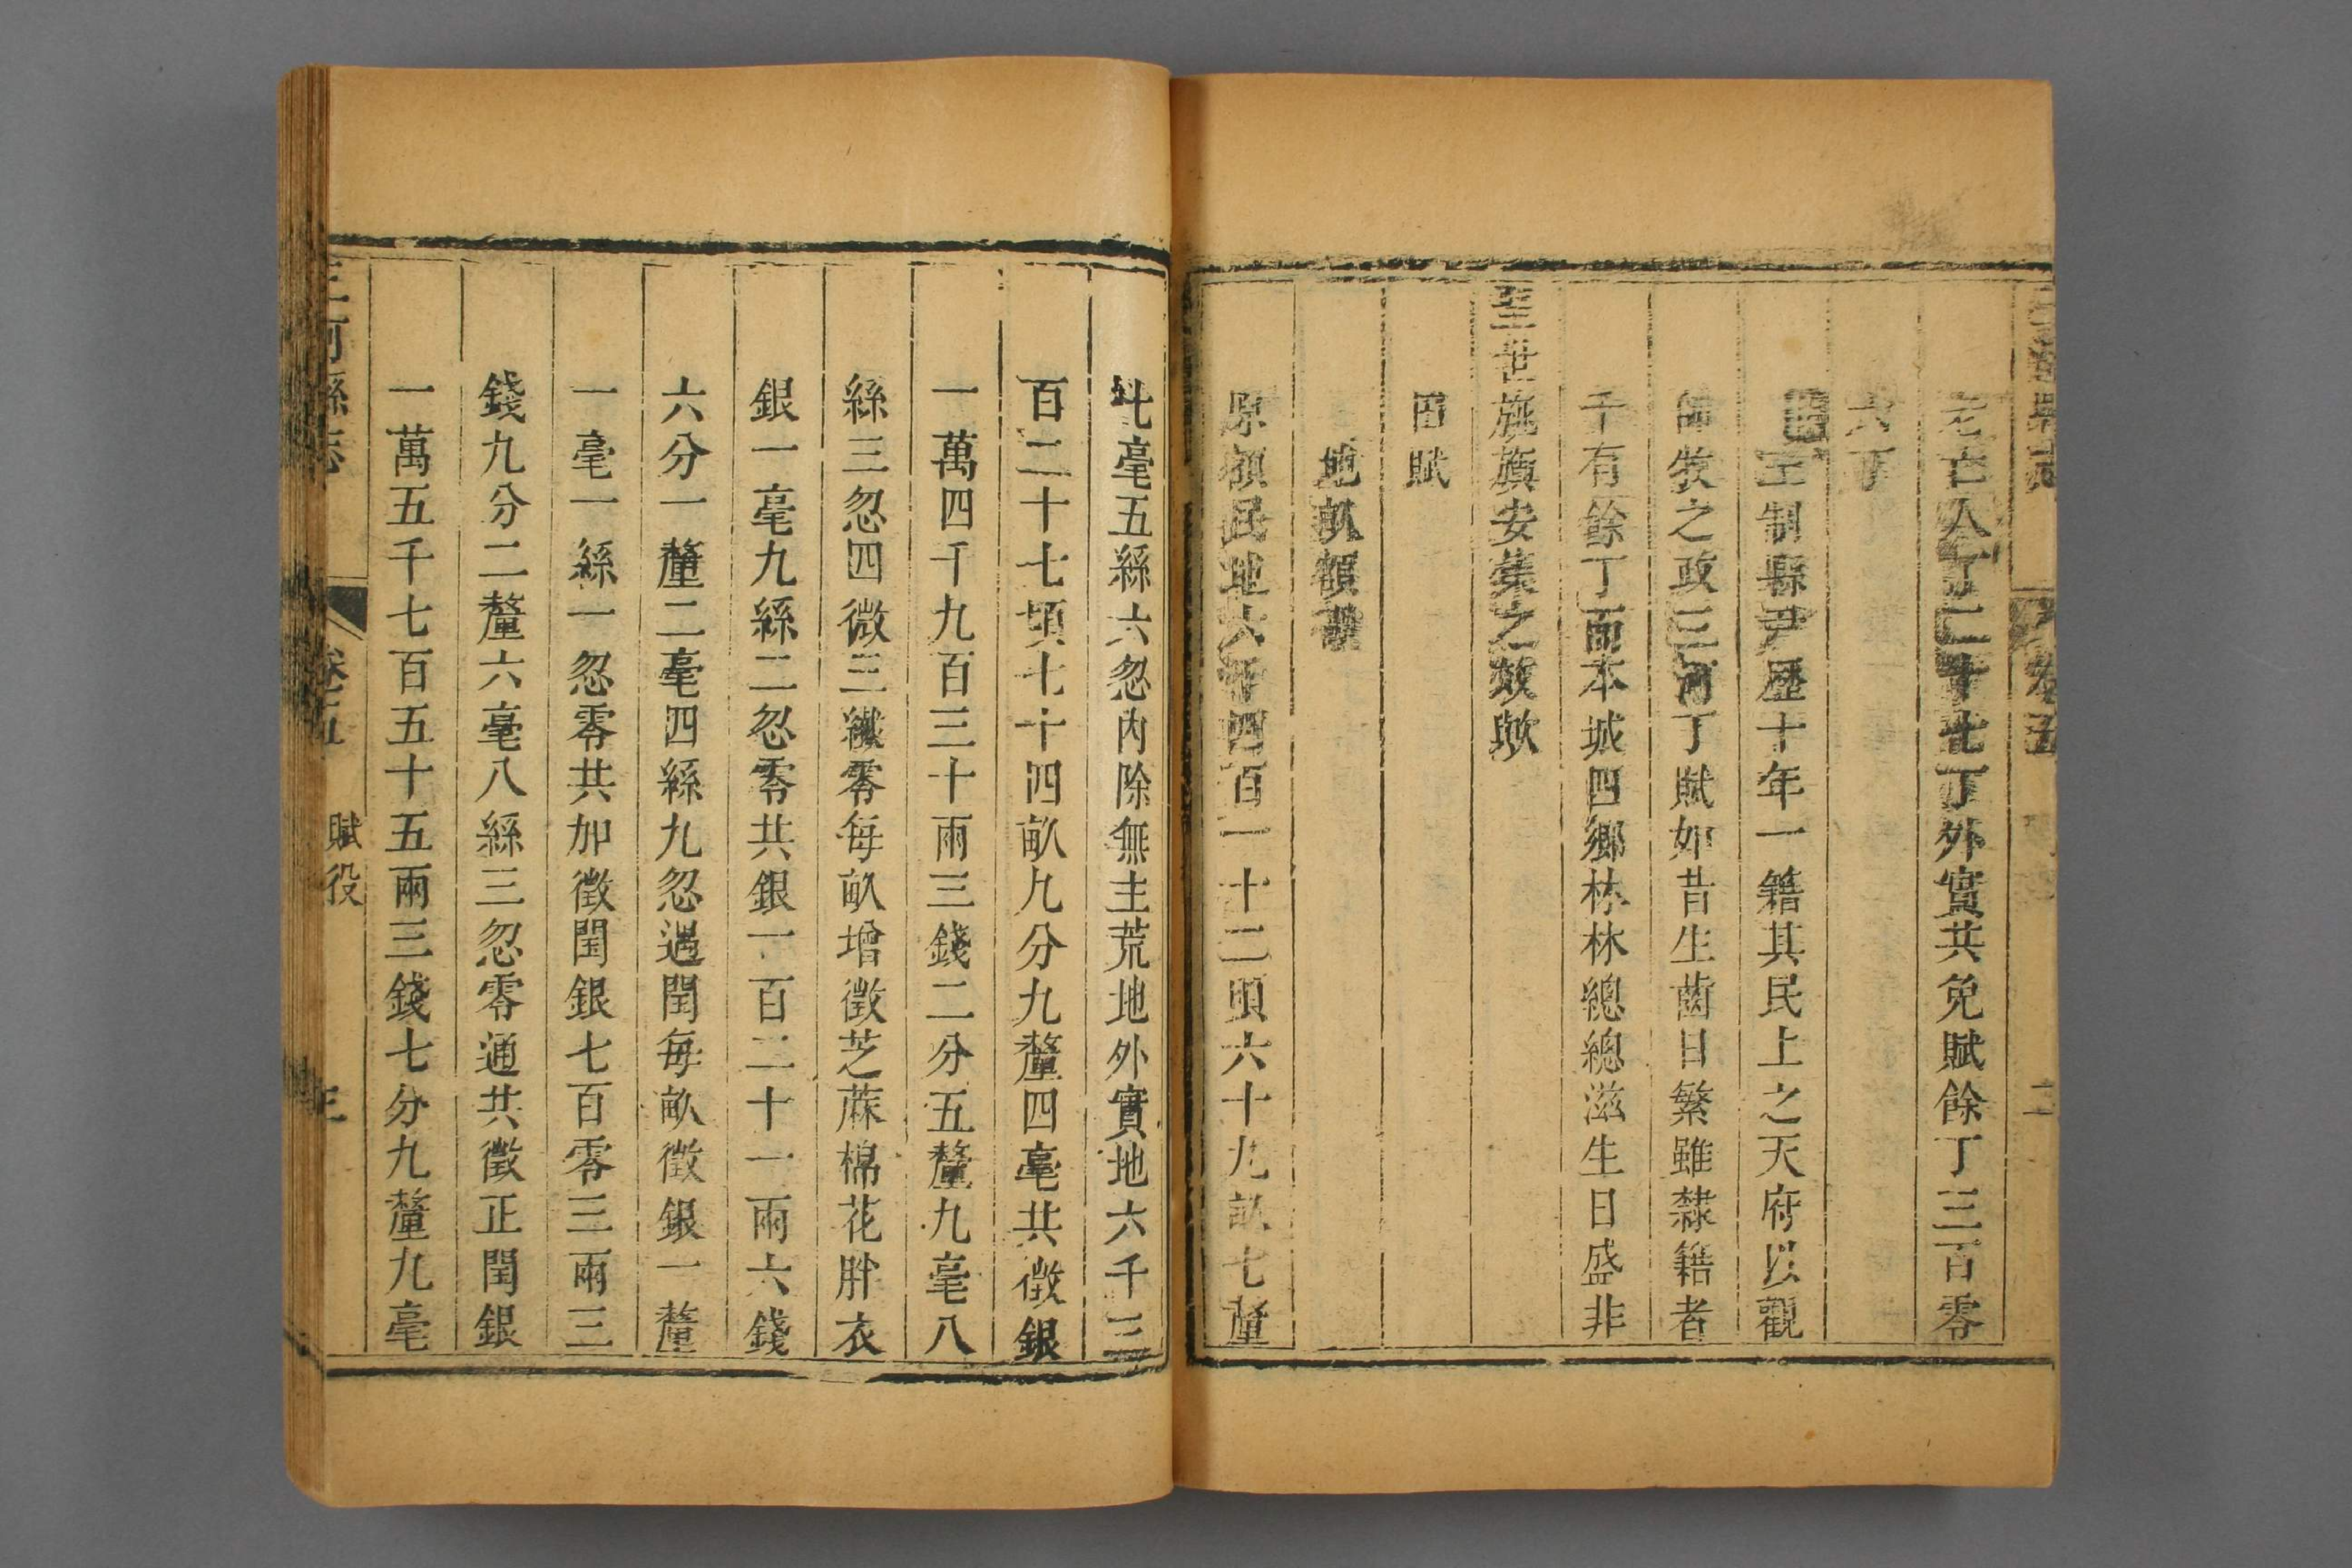 三河縣志
卷五
二
亡人丁二十七丁外實共免賦餘丁三百零
六丁
王制縣尹歷十年一籍其民上之天府以觀
師牧之政三河丁賦如昔生齒日繁雖隸籍者
千有餘丁而本城四鄉林林總總滋生日盛非
聖世旄旗安集之效歟
田賦
地畝額
原額民地六千四百一十二頃六十九畝七釐
七毫五絲六忽內除無主荒地外實地六千三
百二十七頃七十四畝九分九釐四毫共徵銀
一萬四千九百三十兩三錢二分五釐九毫八
絲三忽四微三纖零每畝增徵芝蔴棉花胖衣
銀一毫九絲二忽零共銀一百二十一兩六錢
六分一釐二毫四絲九忽遇閏每畝徵銀一釐
一毫一絲一忽零共加徵閏銀七百零三兩三
錢九分二釐六毫八絲三忽零通共徵正閏銀
一萬五千七百五十五兩三錢七分九釐九毫
三河縣志
卷五
賦役
三